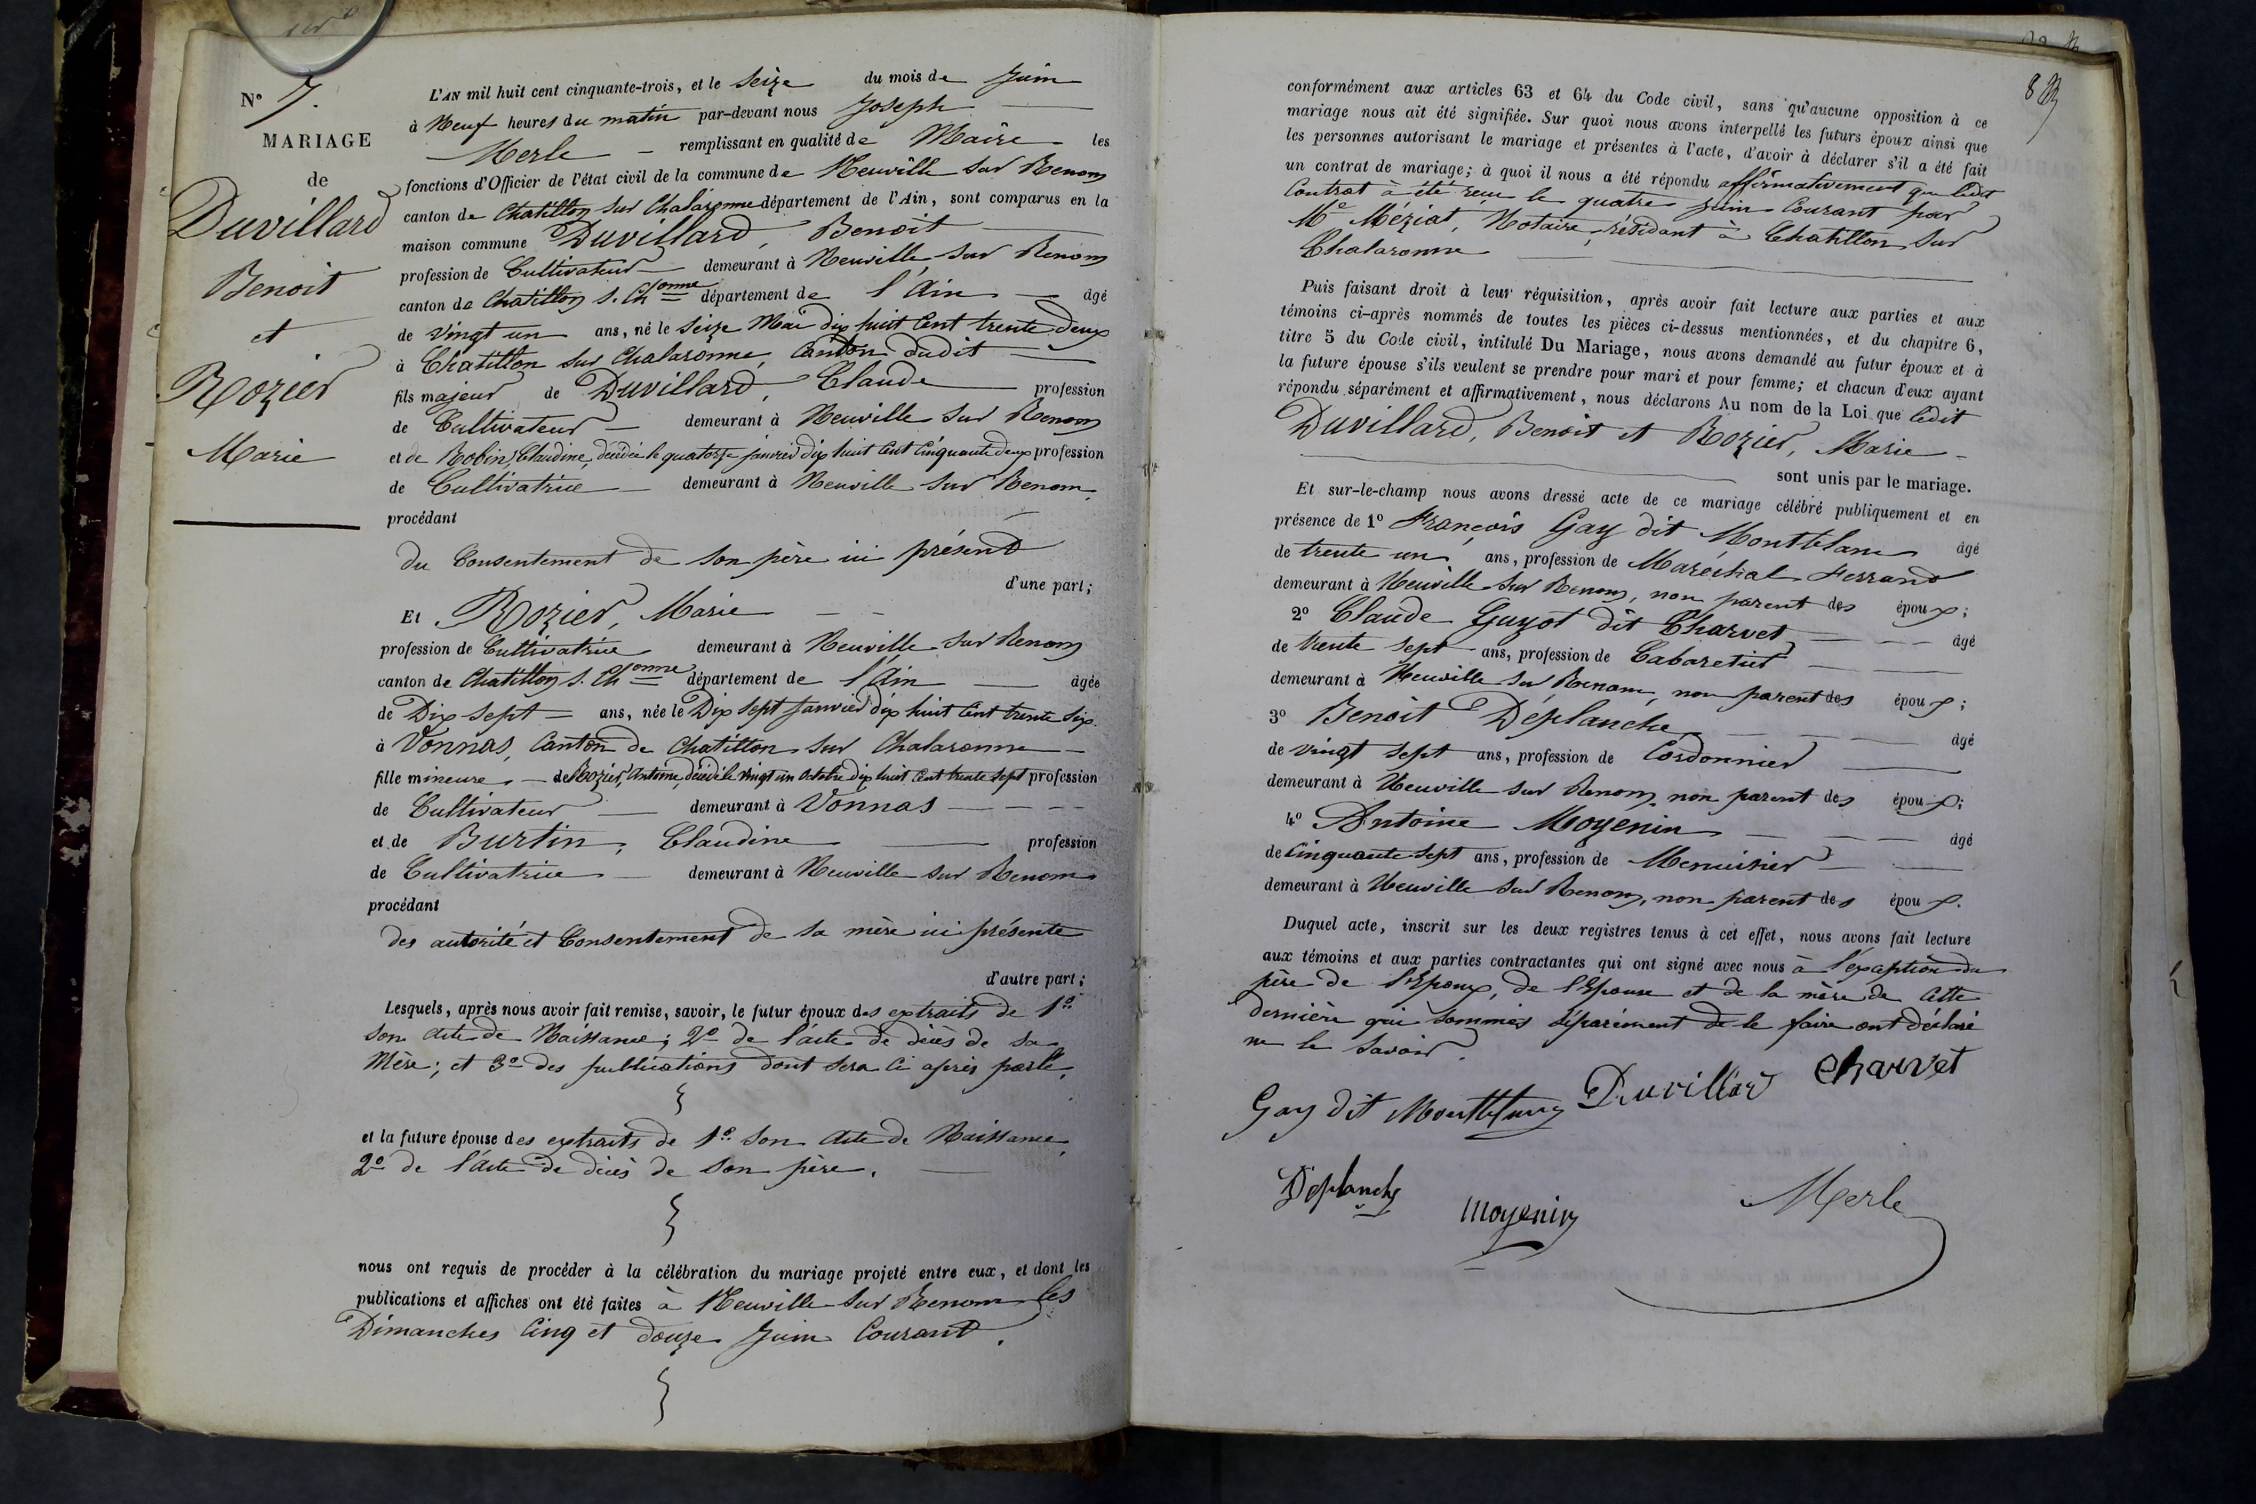 N° 7.
MARIAGE
de
Duvillard
Benoit
et
Rozier
Marie
L'AN mil huit cent cinquante-trois, et le Seize du mois de Juin
à Neuf heures du matin par-devant nous Joseph
Merle remplissant en qualité de Maire les
fonctions d'Officier de l'état civil de la commune de Neuville sur Renom
canton de Chatillon sur Chalaronne département de l'Ain, sont comparus en la
maison commune Duvillard, Benoit
profession de Cultivateur demeurant à Neuville sur Renom
canton de Chatillon s. Chonne département de l'Ain âgé
de vingt un ans, né le Seize Mai dix huit Cent trente deux
à Chatillon sur Chalaronne, Canton dudit
fils majeur de Duvillard, Claude profession
de Cultivateur demeurant à Neuville sur Renom
et de Robin, Claudine, décédée le quatorze janvier dix huit Cent Cinquante deux profession
de Cultivatrice demeurant à Neuville sur Renom,
procédant
du Consentement de son père ici présent
d'une part;
Et Rozier, Marie
profession de Cultivatrice demeurant à Neuville sur Renom
canton de Chatillon s. Chonne département de l'Ain âgée
de Dix sept ans, née le Dix sept Janvier dix huit Cent trente six
à Vonnas, Canton de Chatillon sur Chalaronne
fille mineure de Rozier, Antoine, décédé le vingt un octobre dix huit Cent trente sept profession
de Cultivateur demeurant à Vonnas
et de Burtin, Claudine profession
de Cultivatrice demeurant à Neuville sur Renom
procédant
des autorité et Consentement de sa mère ici présente
d'autre part;
Lesquels, après nous avoir fait remise, savoir, le futur époux des extraits de 1°
son acte de Naissance; 2° de l'acte de décès de sa
Mère; et 3° des publications dont sera ci après parlé,
et la future épouse des extraits de 1° son Acte de Naissance,
2° de l'Acte de décès de son père.
nous ont requis de procéder à la célébration du mariage projeté entre eux, et dont les
publications et affiches ont été faites à Neuville sur Renom les
Dimanches Cinq et douze Juin Courant.
conformément aux articles 63 et 64 du Code civil, sans qu'aucune opposition à ce
mariage nous ait été signifiée. Sur quoi nous avons interpellé les futurs époux ainsi que
les personnes autorisant le mariage et présentes à l'acte, d'avoir à déclarer s'il a été fait
un contrat de mariage; à quoi il nous a été répondu affirmativement que ledit
Contrat à été reçu le quatre juin Courant par
Me Méziat, Notaire, résidant à Chatillon sur
Chalaronne
Puis faisant droit à leur réquisition, après avoir fait lecture aux parties et aux
témoins ci-après nommés de toutes les pièces ci-dessus mentionnées, et du chapitre 6,
titre 5 du Code civil, intitulé Du Mariage, nous avons demandé au futur époux et à
la future épouse s'ils veulent se prendre pour mari et pour femme; et chacun d'eux ayant
répondu séparément et affirmativement, nous déclarons Au nom de la Loi que ledit
Duvillard, Benoit et Rozier, Marie
sont unis par le mariage.
Et sur-le-champ nous avons dressé acte de ce mariage célébré publiquement et en
présence de 1° François Gay dit Montblanc âgé
de trente un ans, profession de Maréchal Ferrand
demeurant à Neuville sur Renom, non parent des époux;
2° Claude Guyot dit Charvet âgé
de trente sept ans, profession de Cabaretier
demeurant à Neuville sur Renom, non parent des époux;
3° Benoit Déplanche âgé
de vingt sept ans, profession de Cordonnier
demeurant à Neuville sur Renom, non parent des époux;
4° Antoine Moyenin âgé
de Cinquante sept ans, profession de Menuisier
demeurant à Neuville sur Renom, non parent des époux.
Duquel acte, inscrit sur les deux registres tenus à cet effet, nous avons fait lecture
aux témoins et aux parties contractantes qui ont signé avec nous à l'exception du
père de l'Epoux, de l'Epouse et de la mère de Cette
dernière qui sommés séparément de le faire ont déclaré
ne le savoir.
Gay dit Duvillard Charvet
Déplanche moyenin Merle